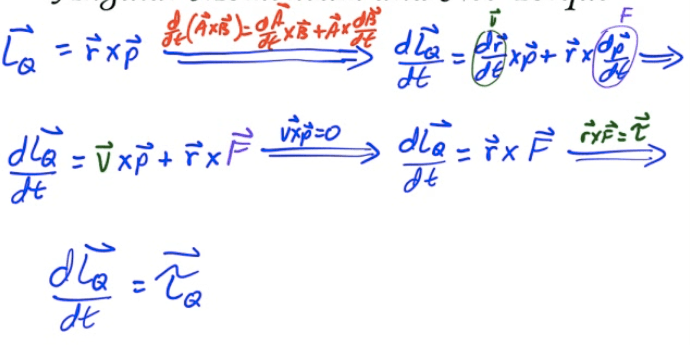 $\vec{L}_Q = \vec{r} \times \vec{p}$ $\xRightarrow{\frac{d}{dt}(\vec{A} \times \vec{B}) = \frac{d\vec{A}}{dt} \times \vec{B} + \vec{A} \times \frac{d\vec{B}}{dt}}$ $\frac{d\vec{L}_Q}{dt} = \overset{\vec{v}}{\frac{d\vec{r}}{dt}} \times \vec{p} + \vec{r} \times \overset{F}{\frac{d\vec{p}}{dt}} \Rightarrow$
$\frac{d\vec{L}_Q}{dt} = \vec{v} \times \vec{p} + \vec{r} \times \vec{F}$ $\xRightarrow{\vec{v} \times \vec{p} = 0}$ $\frac{d\vec{L}_Q}{dt} = \vec{r} \times \vec{F}$ $\xRightarrow{\vec{r} \times \vec{F} = \vec{\tau}}$
$\frac{d\vec{L}_Q}{dt} = \vec{\tau}_Q$